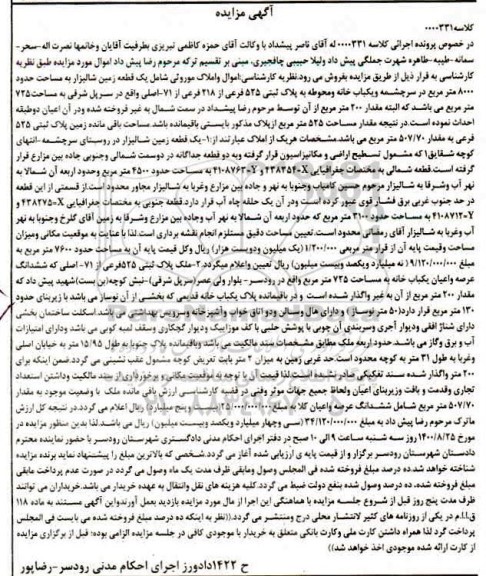 آگهی مزایده
کلاسه ۰۰۰۰۳۳۱
در خصوص پرونده اجرائی کلاسه ۰۰۰۰۳۳۱ له آقای ناصر پیشداد با وکالت آقای حمزه کاظمی تبریزی بطرفیت آقایان وخانمها نصرت اله-سحر-
سمانه-طیبه-طاهره شهرت جملگی پیش داد ولیلا حبیبی چافجیری، مبنی بر تقسیم ترکه مرحوم رضا پیش داد اموال مورد مزایده طبق نظریه
کارشناسی به قرار ذیل از طریق مزایده بفروش می رود.نظریه کارشناسی:اموال واملاک موروثی شامل یک قطعه زمین شالیزار به مساحت حدود
۸۰۰۰ متر مربع در سرچشمه ویکباب خانه ومحوطه به پلاک ثبتی ۵۲۵ فرعی از ۲۱۸ فرعی از ۷۱-اصلی واقع در سرپل شرقی به مساحت ۷۲۵
متر مربع می باشد که البته مقدار ۲۰۰ متر مربع از آن توسط مرحوم رضا پیشداد در سمت شمال به غیر فروخته شده ودر آن اعیان دوطبقه
احداث نموده است.در نتیجه مقدار مساحت ۵۲۵ متر مربع ازپلاک مذکور بایستی باقیمانده باشد.مساحت باقی مانده زمین پلاک ثبتی ۵۲۵
فرعی به مقدار ۵۰۷/۷۰ متر مربع می باشد.مشخصات هریک از املاک عبارتند از:۱-یک قطعه زمین شالیزار در روستای سرچشمه-انتهای
کوچه شقایق۱ که مشمول تسطیح اراضی و مکانیزاسیون قرار گرفته وبه دو قطعه جداگانه در دوسمت شمالی وجنوبی جاده بین مزارع قرار
گرفته است.قطعه شمالی به مختصات جغرافیایی X=۴۳۸۳۵۴۰ و Y=۴۱۰۸۷۶۳ به مساحت حدود ۴۵۰۰ متر مربع وحدود اربعه آن شمالا به
نهر آب وشرقا به شالیزار مرحوم حسین کامیاب وجنوبا به نهر و جاده بین مزارع وغربا به شالیزار مجاور محدود است.از قسمتی از این قطعه
در حد جنوب غربی برق فشار قوی عبور کرده است ودر آن یک حلقه چاه آب قرار دارد.قطعه جنوبی به مختصات جغرافیایی X=۴۳۸۲۷۵ و
Y=۴۱۰۸۷۱۲ به مساحت حدود ۳۱۰۰ متر مربع که حدود اربعه آن شمالا به نهر آب وجاده بین مزارع وشرقا به زمین آقای گلرخ وجنوبا به نهر
آب وغربا به شالیزار آقای رمضانی محدود است.تعیین مساحت دقیق مستلزم انجام نقشه برداری است.لذا با عنایت به موقعیت مکانی ومیزان
مساحت وقیمت پایه آن از قرار متر مربعی ۱/۲۰۰/۰۰۰ (یک میلیون ودویست هزار) ریال وکل قیمت پایه آن به مساحت حدود ۷۶۰۰ متر مربع به
مبلغ ۹/۱۲۰/۰۰۰/۰۰۰( نه میلیارد ویکصد وبیست میلیون) ریال تعیین واعلام میگردد.۲-ملک پلاک ثبتی ۵۲۵فرعی از ۷۱- اصلی که ششدانگ
عرصه واعیان یکباب خانه به مساحت ۷۲۵ متر مربع واقع در رودسر- بلوار ولی عصر(سرپل شرقی)-نبش کوچه(بن بست)شهید پیش داد که
مقدار ۲۰۰ متر مربع از آن به غیر واگذار شده است و در باقیمانده پلاک یکباب خانه قدیمی که بخشی از آن نوساز می باشد با زیربنای حدود
۱۳۰ متر مربع قرار دارد(۵۰ متر نوساز) و دارای هال وسالن ودو اتاق خواب وآشپزخانه وسرویس بهداشتی می باشد.اسکلت ساختمان بخشی
دارای شناژ افقی ودیوار آجری وسربندی آن چوبی با پوشش حلبی با کف موزاییک ودیوار گچکاری وسقف لمبه کوبی می باشد ودارای امتیازات
آب و برق وگاز می باشد.حدود اربعه ملک مطابق مشخصات سند مالکیت می باشد وباقیمانده پلاک جنوبا به طول ۱۵/۹۵ متر به خیابان اصلی
وغربا به طول ۳۱ متر به کوچه محدود است.حد غربی زمین به میزان ۲ متر بابت تعریض کوچه مشمول عقب نشینی می گردد.ضمن اینکه برای
۲۰۰ متر واگذار شده سند تفکیکی صادر نشده است.لذا قیمت آن با توجه به موقعیت مکانی، برخورداری از سند مالکیت وداشتن استعداد
تجاری وقدمت و بافت وزیربنای اعیان ولحاظ جمیع جهات موثر وفنی در قضیه کارشناسی ارزش باقی مانده ملک با وضعیت موجود به مقدار
۵۰۷/۷۰ متر مربع شامل ششدانگ عرصه واعیان کلا به مبلغ ۲۵/۰۰۰/۰۰۰/۰۰۰(بیست وپنج میلیارد) ریال اعلام می گردد.در نتیجه کل ارزش
ماترک مرحوم رضا پیش داد به مبلغ ۳۴/۱۲۰/۰۰۰/۰۰۰ (سی وچهار میلیارد ویکصد وبیست میلیون) ریال می باشد.لذا بدین منظور مزایده در
مورخ ۱۴۰۰/۸/۲۵ روز سه شنبه ساعت ۹ الی ۱۰ صبح در دفتر اجرای احکام مدنی دادگستری شهرستان رودسر با حضور نماینده محترم
دادستان شهرستان رودسر برگزار و از قیمت پایه ی ارزیابی شده آغاز می گردد.شخصی که بالاترین مبلغ را پیشنهاد نماید برنده مزایده
شناخته خواهد شد.ده درصد مبلغ فروخته شده فی المجلس وصول ومابقی ظرف مدت یک ماه وصول می گردد در صورت عدم پرداخت مابقی
مبلغ فروخته شده، ده درصد وصول شده بنفع دولت ضبط می گردد.کلیه هزینه های نقل وانتقال به عهده خریدار می باشد.خریداران می توانند
ظرف مدت پنج روز قبل از شروع جلسه مزایده با هماهنگی این اجرا از مال مورد مزایده بازدید بعمل آورندواین آگهی مستند به ماده ۱۱۸
ق.ا.ا.م در یکی از روزنامه های کثیر لانتشار محلی درج ومنتشر می گردد.((نظر به اینکه ده درصد مبلغ فروخته شده می بایست فی المجلس
پرداخت گردد لذا همراه داشتن کارت ملی وکارت بانکی متعلق به خریدار با موجودی کافی در جلسه مزایده الزامی بوده؛ قبل از برگزاری مزایده
از کارت ارائه شده موجودی اخذ خواهد شد))
ح ۱۴۲۲دادورز اجرای احکام مدنی رودسر-رضاپور